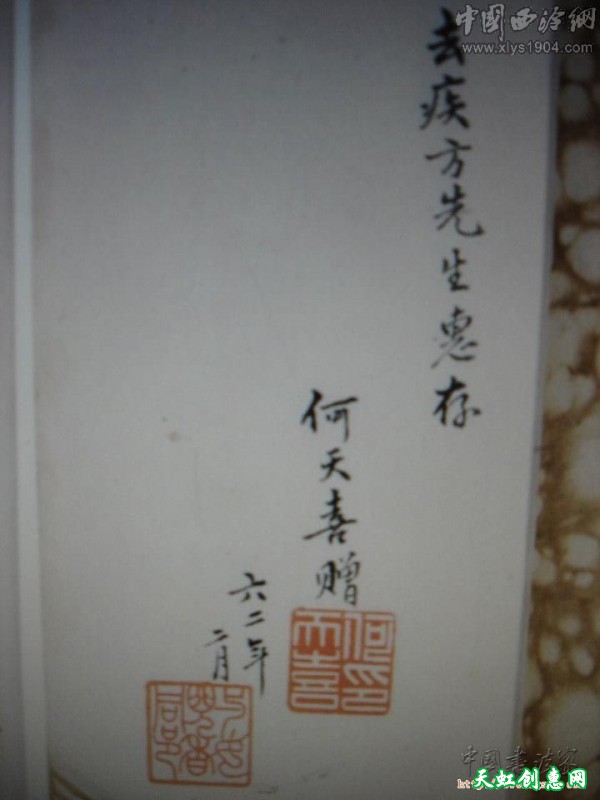 去疾方先生惠存
何天喜赠
六二年
二月
何天喜印
中国西泠網
www.xlys1904.com
中国書法家
天虹创惠网